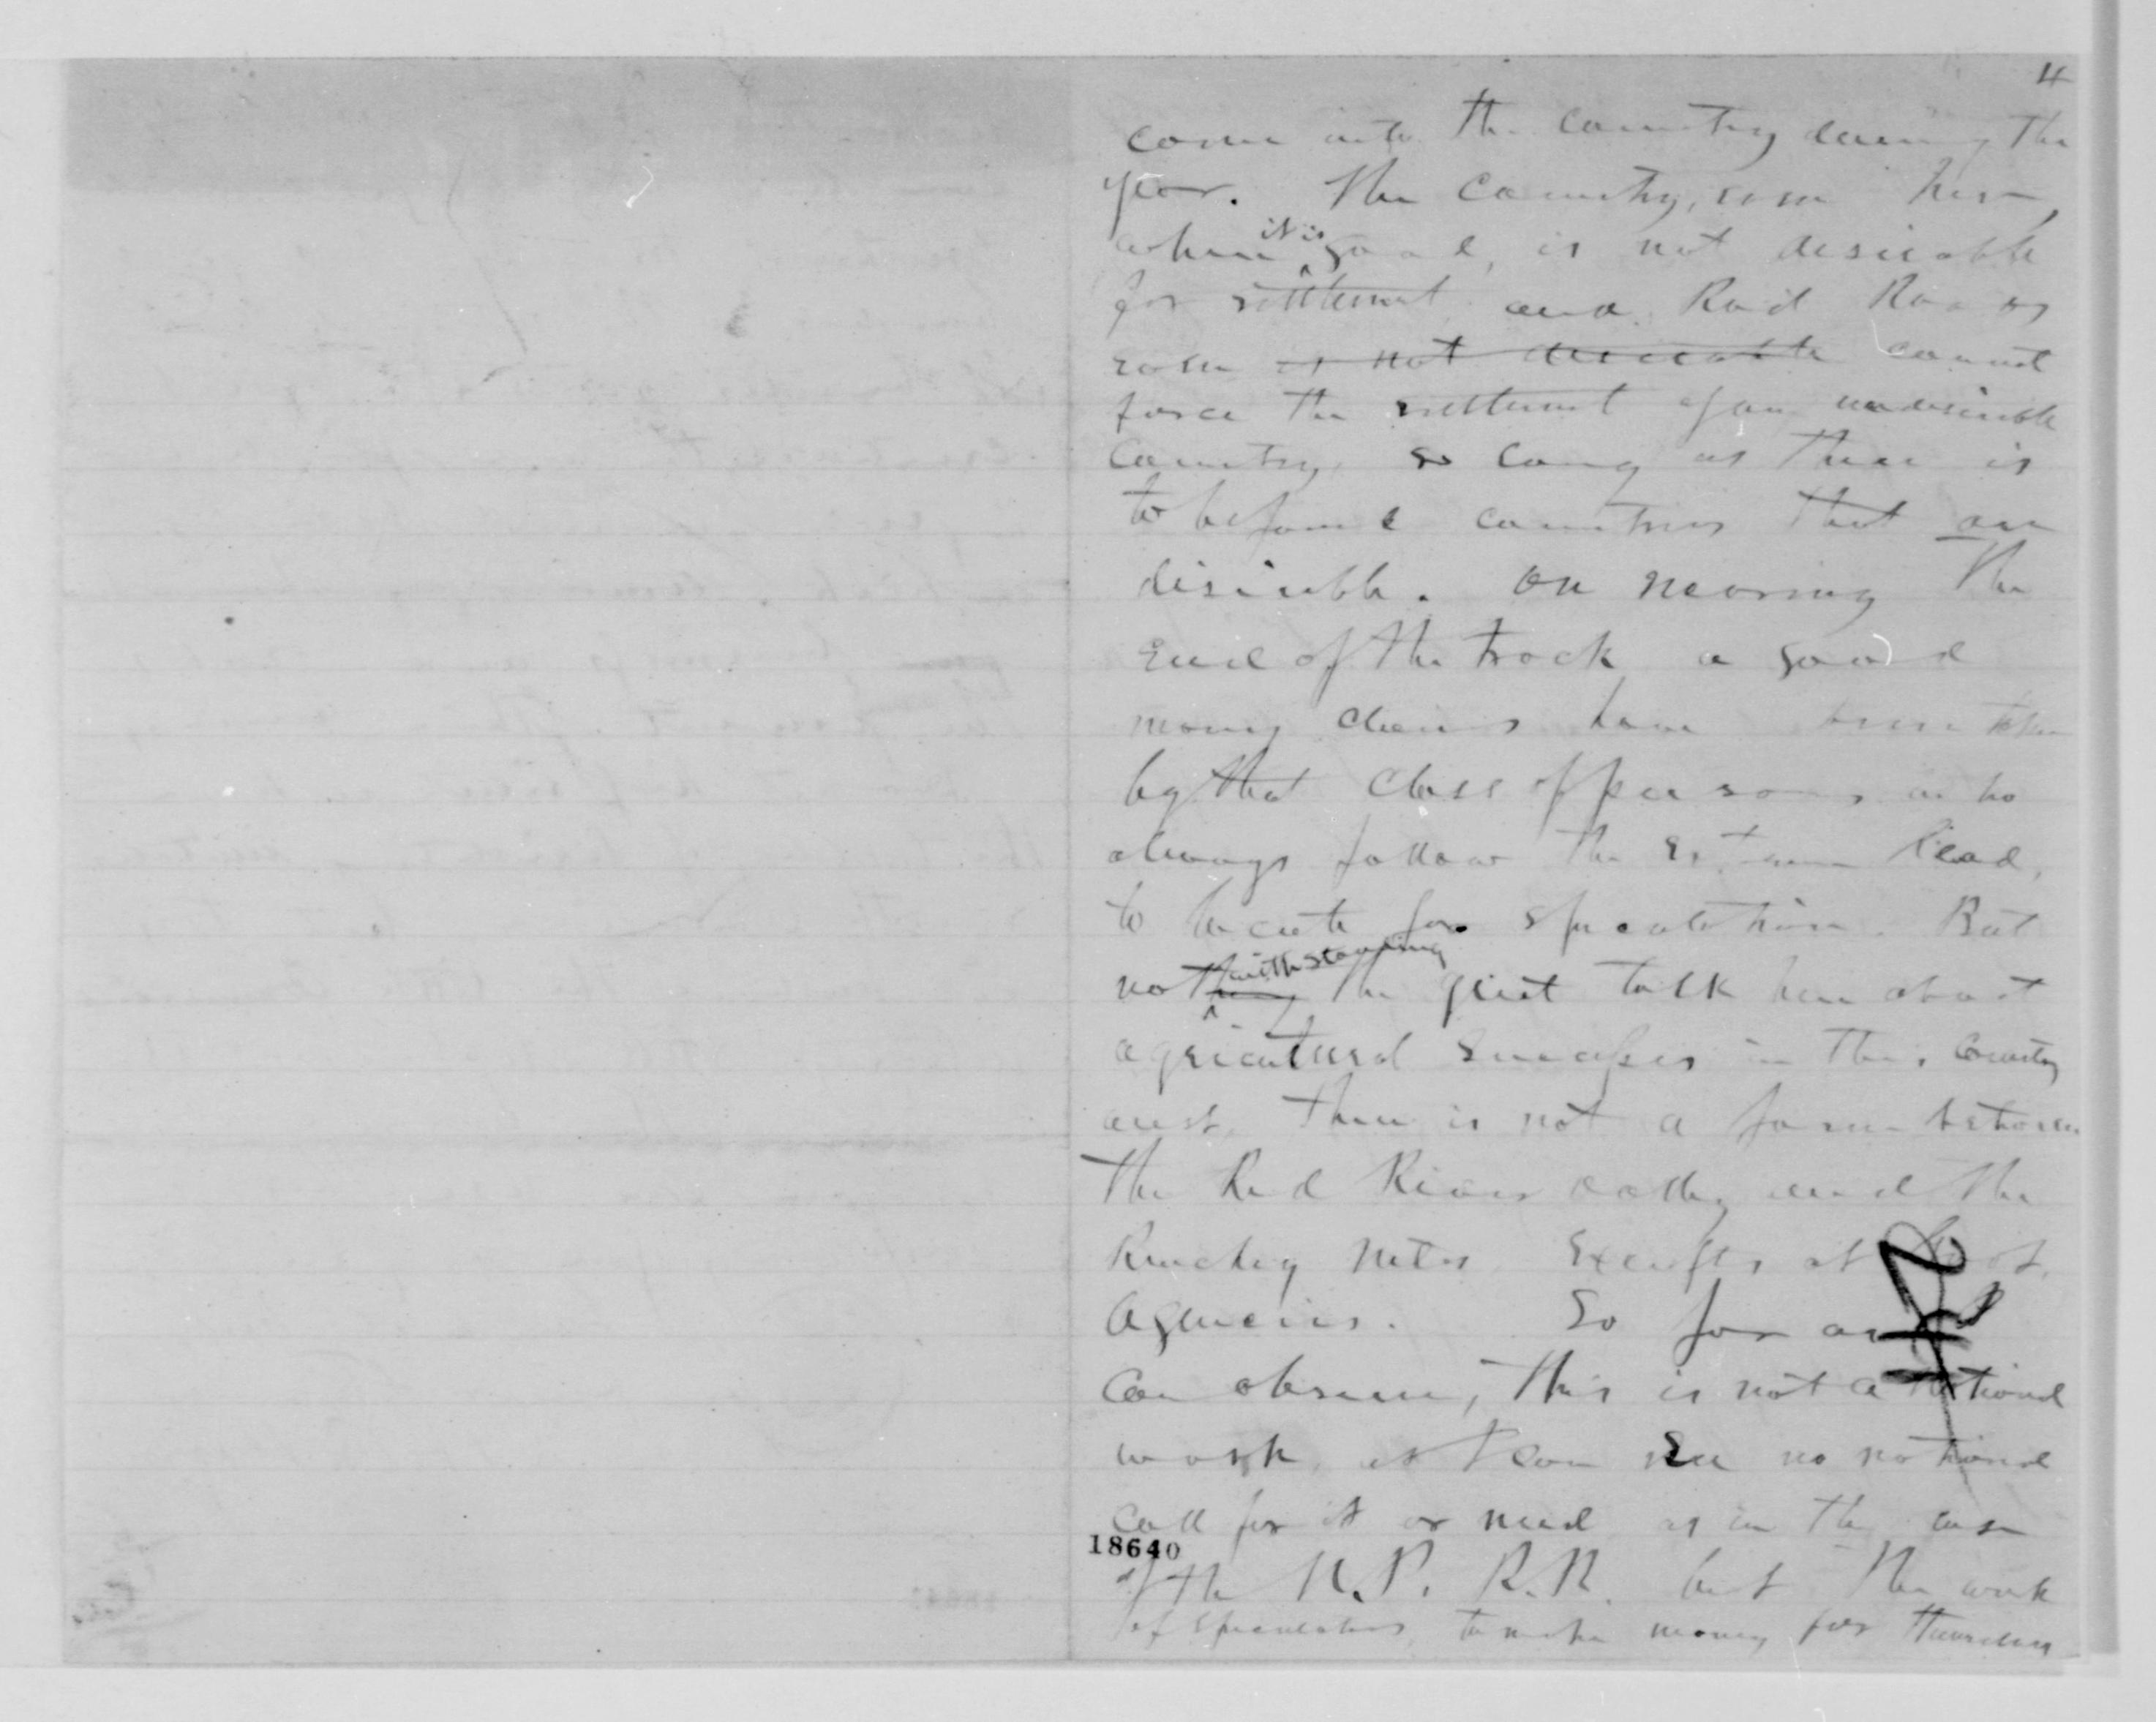 4
come into the country during the
year. The country, even here,
where it is good, is not desirable
for settlement and Rail Roads
even is not desirable cannot
force the settlement of an undesirable
country, so long as there is
to be found countries that are
desirable. On nearing the
end of the track a good
many claims have been taken
by that class of persons who
always follow the extreme lead,
to locate for speculation. But
notwithstanding the great talk here about
agricultural successes in this country
west, there is not a farm between
the Red River valley and the
Rocky Mts. except at
Agencies. So far as I
can observe, this is not a national
work, as I can see no national
call for it or need as in the case
18640
of the U.P. R.R. but the work
of speculators, to make money for themselves